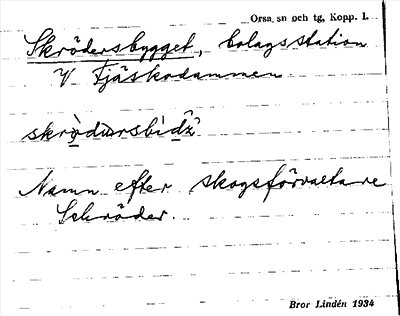 Orsa sn och tg, Kopp. l.
Skrödersbygget, bolagsstation
V Fjäskodammen
Namn efter skogsförvaltare
Schröder.
Bror Lindén 1934